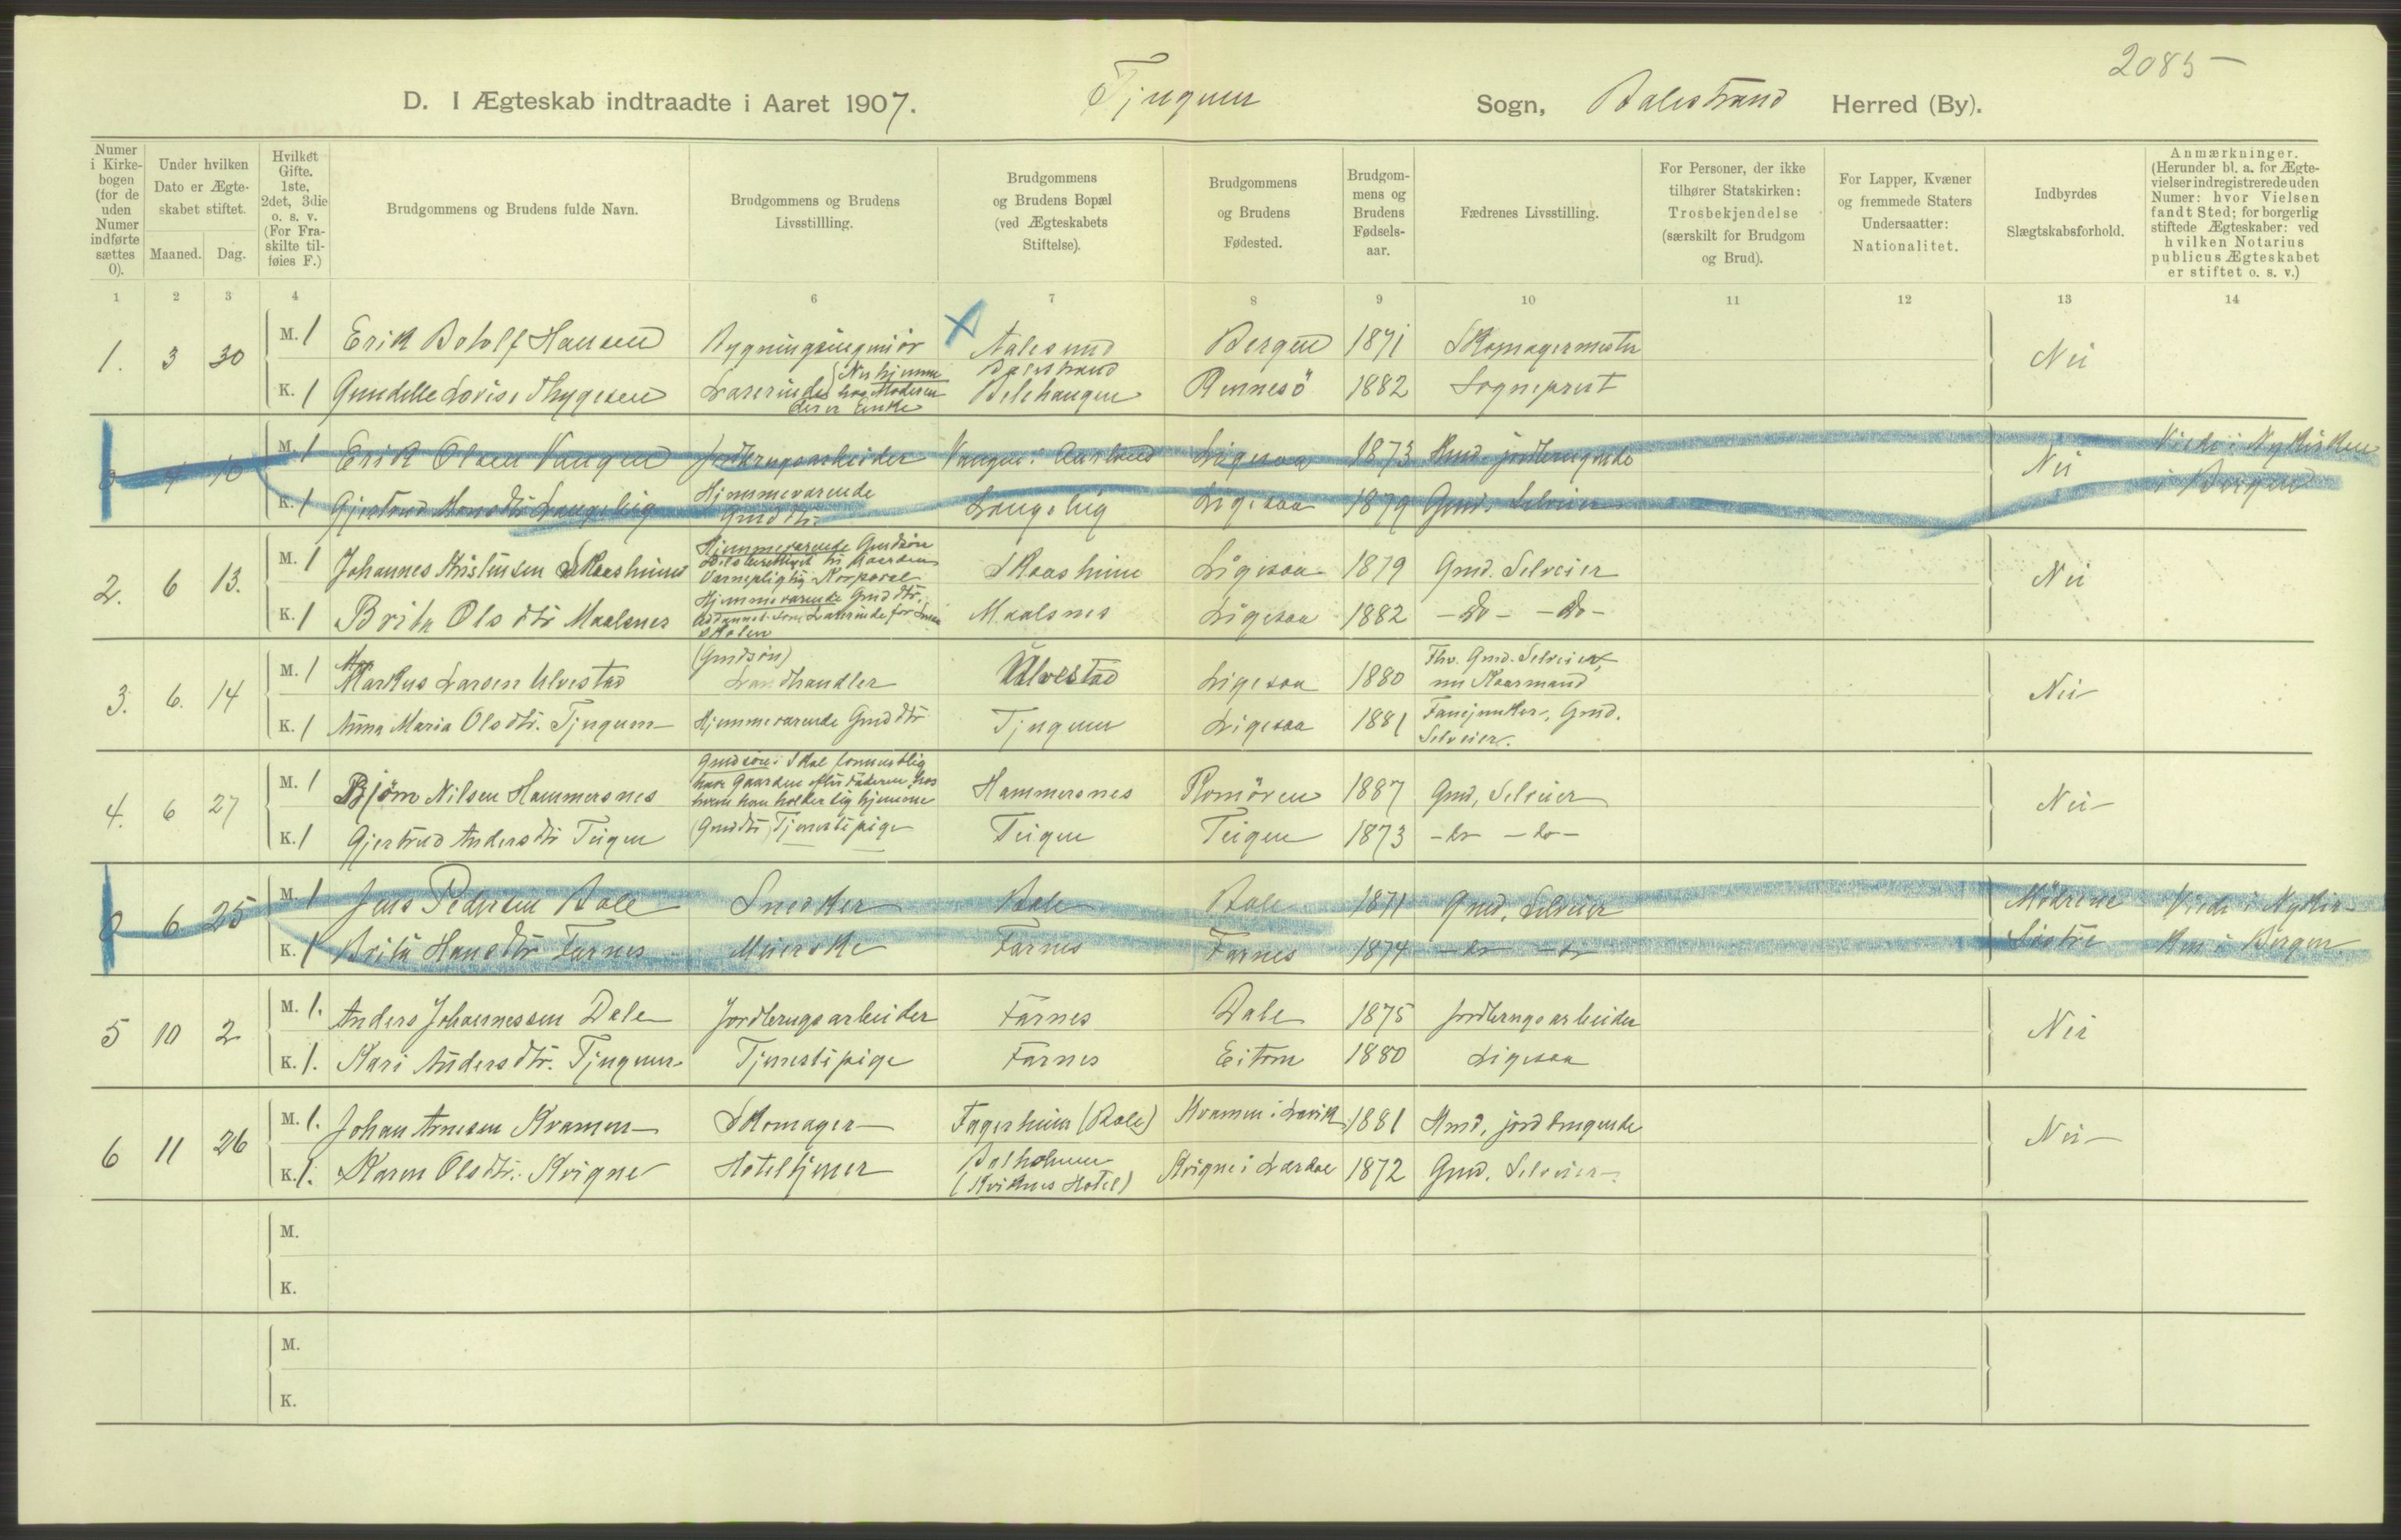 2085
D. I Ægteskab indtraadte i Aaret 1907. Tjugum Sogn, Balestrand Herred (By).
Numer i Kirkebogen (for de uden Numer indførte sættes 0).
Under hvilken Dato er Ægteskabet stiftet.
Maaned. Dag.
Hvilket Gifte. 1ste, 2det, 3die o. s. v. (For Fraskilte tilføies F.)
Brudgommens og Brudens fulde Navn.
Brudgommens og Brudens Livsstillling.
Brudgommens og Brudens Bopæl (ved Ægteskabets Stiftelse).
Brudgommens og Brudens Fødested.
Brudgommens og Brudens Fødselsaar.
Fædrenes Livsstilling.
For Personer, der ikke tilhører Statskirken: Trosbekjendelse (særskilt for Brudgom og Brud).
For Lapper, Kvæner og fremmede Staters Undersaatter: Nationalitet.
Indbyrdes Slægtskabsforhold.
Anmærkninger. (Herunder bl. a. for Ægtevielser indregistrerede uden Numer: hvor Vielsen fandt Sted; for borgerlig stiftede Ægteskaber: ved hvilken Notarius publicus Ægteskabet er stiftet o. s. v.)
1 2 3 4 6 7 8 9 10 11 12 13 14
1. 3 30 M. 1 Erik Botolf Hansen Bygningsingeniør X Aalesund Bergen 1871 Skomagermester Nei
K. 1 Gundelle Lovise Thygesen Lærerinde (Nu hjemme hos Moderen der er Enke Balestrand Belehaugen Rennesö 1882 Sogneprest
0 4 10 M. 1 Erik Olsen Vangen Jordbrugsarbeider Vangen i Aurland Ligesaa 1873 Hmd. jordbrugende Nei Viede i Nykirken
K. 1 Gjertrud Hansdtr Laugelig Hjemmeværende Gmd dtr. Laugelig Ligesaa 1879 Gmd. Selveier i Bergen
2. 6 13. M. 1 Johannes Kristensen Skaasheim Hjemmeværende Gmdsön Værnepligtig Korporal Skaasheim Ligesaa 1879 Gmd. Selveier Nei
K. 1 Brita Olsdtr Maalsnes Hjemmeværende Gmd dtr. Uddannet som Lærerinde for Smaaskolen Maalsnes Ligesaa 1882 - do - - do -
3. 6. 14 M. 1 Markus Larsen Ulvestad (Gmdsön) Landhandler Ulvestad Ligesaa 1880 Fhv. Gmd. Selveier, nu Kaarmand Nei
K. 1 Anna Maria Olsdtr. Tjugum Hjemmeværende Gmd dtr Tjugum Ligesaa 1881 Fanejunker, Gmd. Selveier.
4. 6 27 M. 1 Björn Nilsen Hammersnes Gmdsön: Skal have Gaarden efter Faderen, hos hvem han holder sig hjemme Hammersnes Romören 1887 Gmd, Selveier Nei
K. 1 Gjertrud Andersdtr Teigen (Gmddtr) Tjenestepige Teigen Teigen 1873 - do - do -
0 6 25 M. 1 Jens Pedersen Bale Snedker Bale Bale 1871 Gmd. Selveier Mödrene Viede i Nykir-
K. 1 Brita Hansdtr Farnes Meierske Farnes Farnes 1874 - do - do Söstre ken i Bergen
5 10 2 M. 1. Anders Johannessen Dale Jordbrugsarbeider Farnes Dale 1875 Jordbrugsarbeider Nei
K. 1. Kari Andersdtr. Tjugum Tjenestepige Farnes Eitorn 1880 Ligesaa
6 11 26 M. 1. Johan Arnesen Kvamen Skomager Fagerheim (Bale) Kvamen i Lavik 1881 Hmd, jordbrugende Nei
K. 1. Karen Olsdtr. Kvigne Hotelhjener Balholmen (Kviknes Hotel) Kvigne i Lærdal 1872 Gmd. Selveier
M.
K.
M.
K.